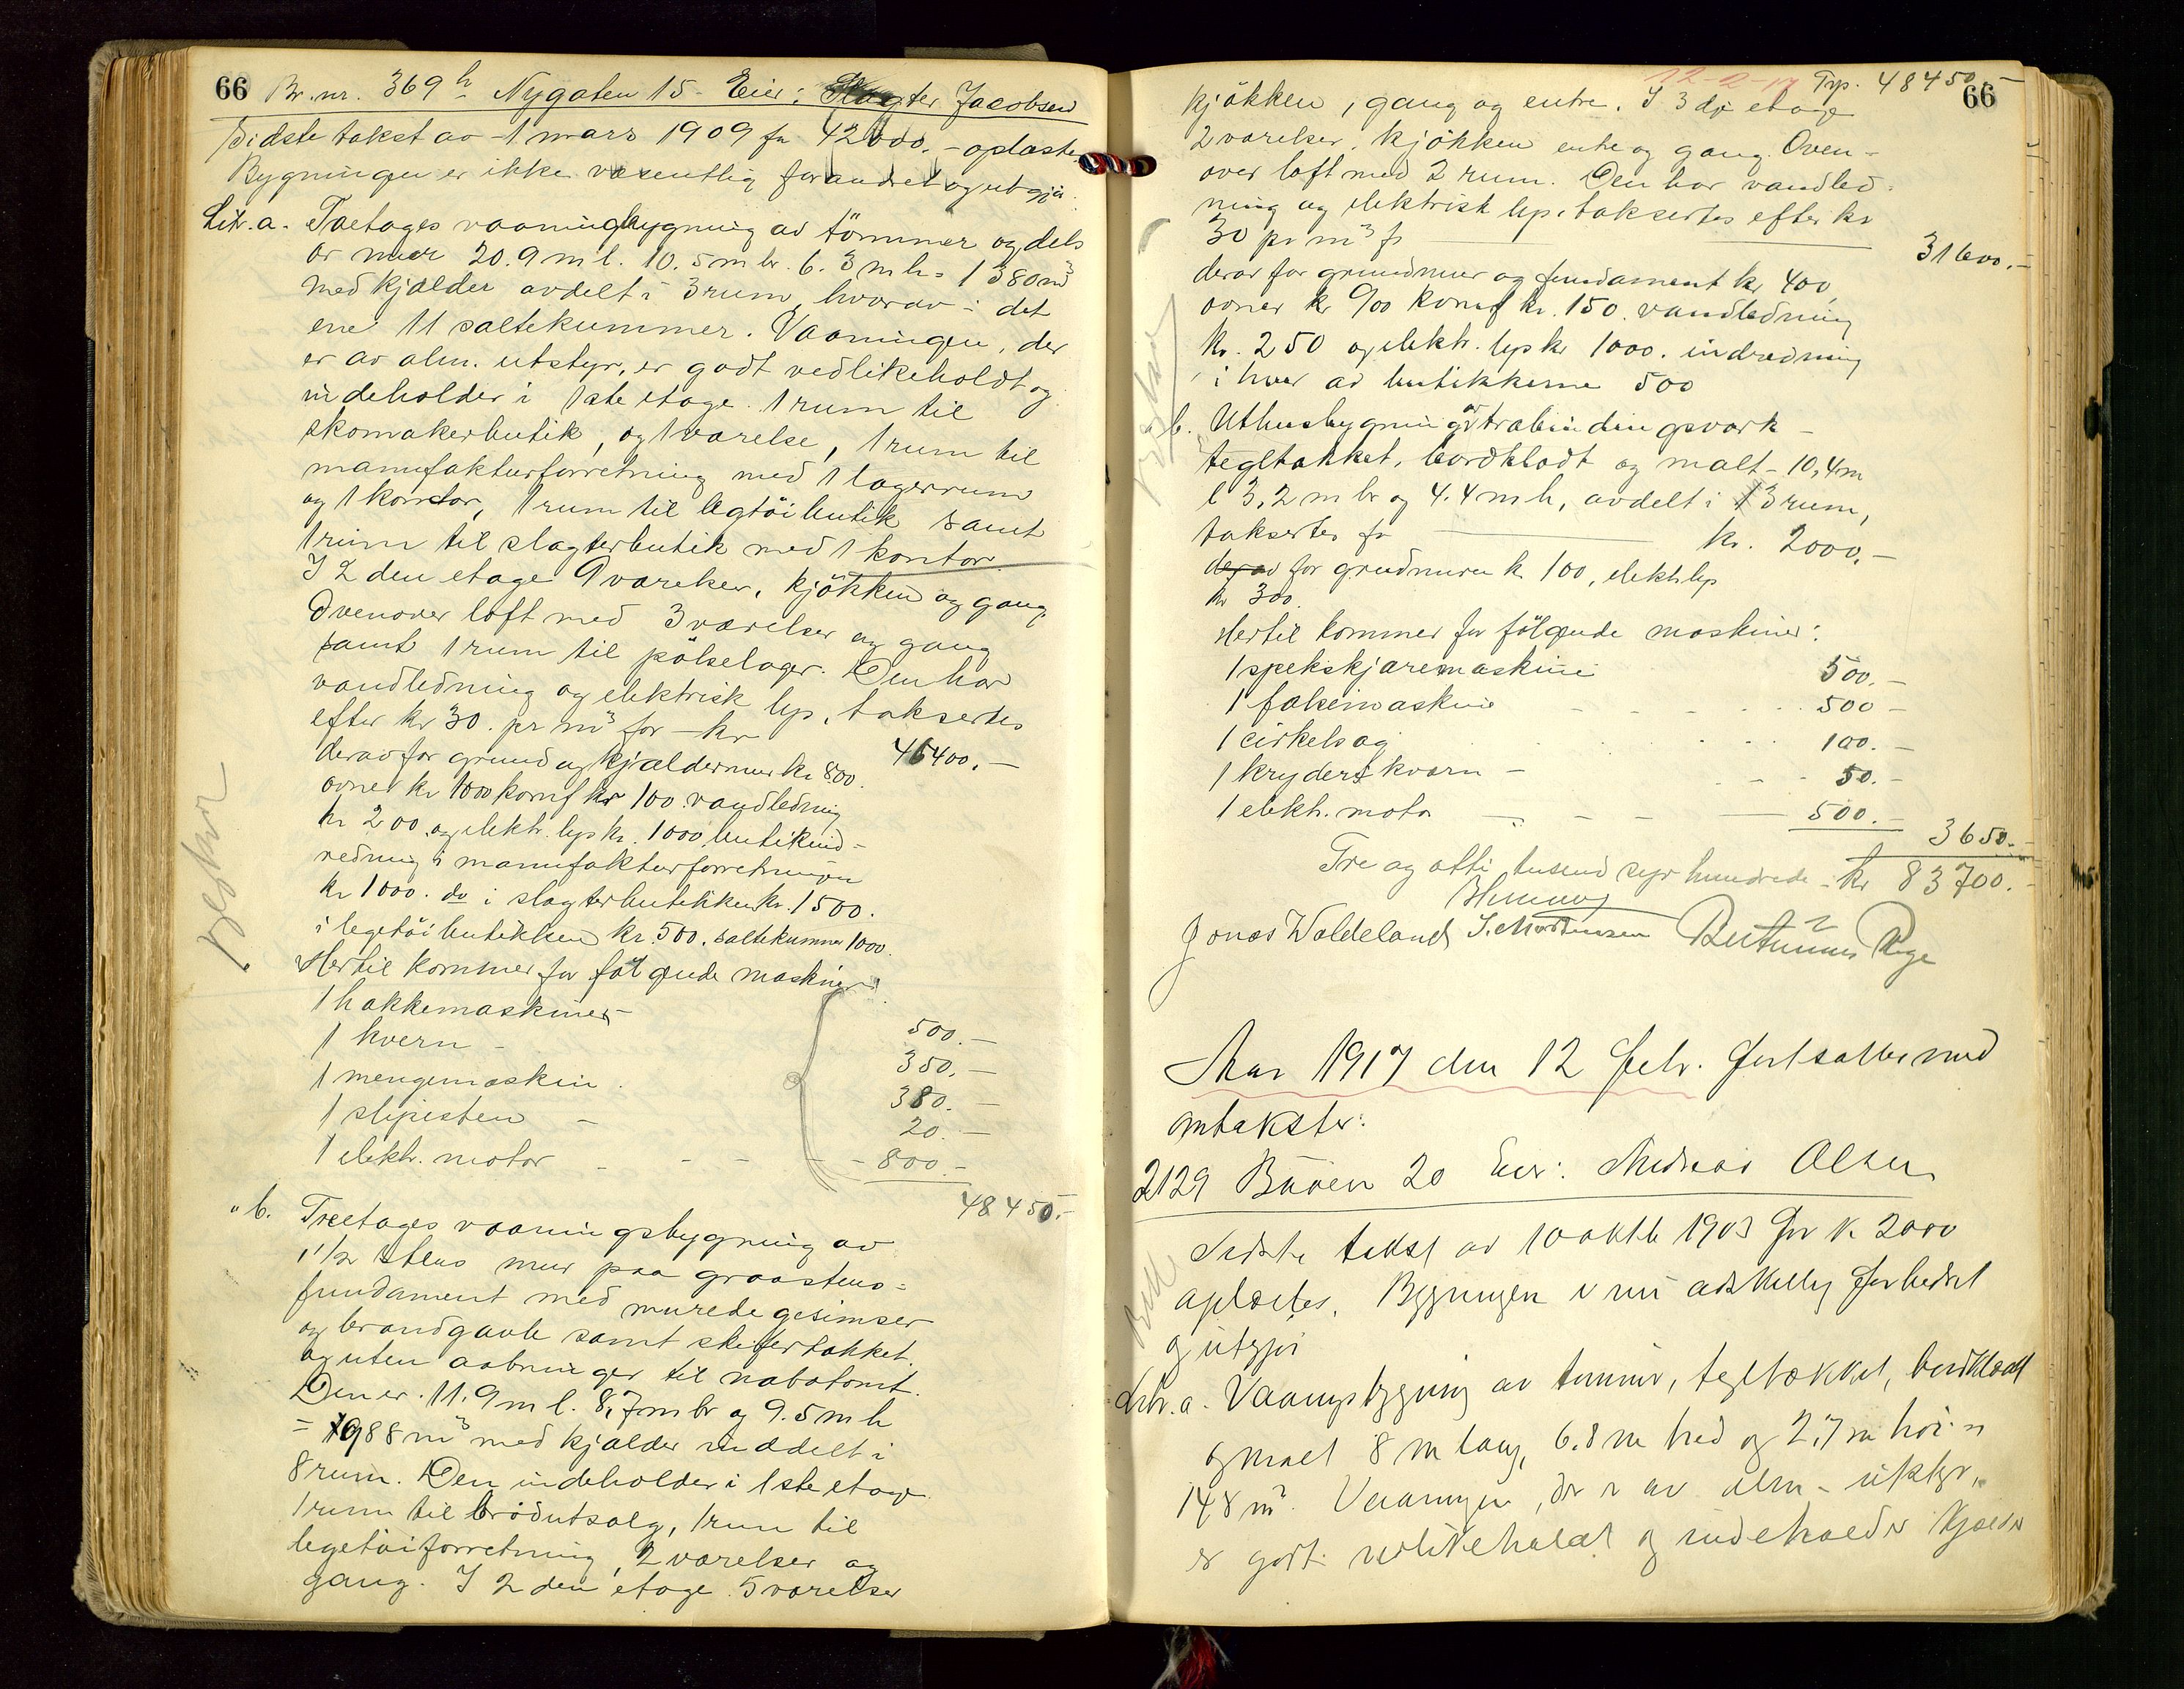 66 Br. nr. 369 h Nygaten 15 - Eier: Slagter Jacobsen
Sidste takst av 1 mars 1909 fr 42000.- oplæstes
Bygningen er ikke væsentlig forandret og utgjör:
Litr. a. Toetages vaaningsbygning av tömmer og dels
av mur 20.9 m l. 10.5 m br. 6.3 m h = 1380 m³
med kjælder avdelt i 3 rum, hvorav i det
ene 11 saltekummer. Vaaningen, der
er av alm. utstyr, er godt vedlikeholdt og
indeholder i 1ste etage 1 rum til
skomakerbutik, og 1 værelse, 1 rum til
manufakturforretning med 1 lagerrum
og 1 kontor, 1 rum til legtöibutik samt
1 rum til slagterbutik med 1 kontor.
I 2den etage 9 værelser, kjökken og gang
Ovenover loft med 3 værelser og gang
samt 1 rum til pölselager. Den har
vandledning og elektrisk lys, taksertes
efter kr 30. pr m³ for - kr 46400.-
derav for grund og kjældermur kr 800.
ovner kr 1000 komf kr 100. vandledning
kr 200. og elektr. lys kr. 1000, butikind=
redning i manufakturforretningen
kr 1000. do i slagterbutikken kr. 1500.
i legetöibutikken kr. 500. saltekummer 1000.
Hertil kommer for fölgende maskiner:
1 hakkemaskiner - 500.-
1 kvern - 350.-
1 mengemaskin. 380.-
1 slipesten - 20.-
1 elektr. motor - - - - 800.-
48450.-
Bestaar
" b. Treetages vaaningsbygning av
1 1/2 stens mur paa graastens=
fundament med murede gesimser
og brandgavle samt skifertækket.
og uten aabninger til nabotomt.
Den er. 11.9 m l. 8,7 m br og 9.5 m h
= 988 m³ med kjælder inddelt i
8 rum. Den indeholder i 1ste etage
1 rum til brödutsalg, 1 rum til
legetöiforretning, 2 værelser og
gang. I 2den etage 5 værelser
12-2-17 Trp. 48450.-
66
kjökken, gang og entre. I 3die etage
2 værelser, kjökken entre og gang. Oven-
over loft med 2 rum. Den har vandled=
ning og elektrisk lys, taksertes efter kr
30 pr m³ fr 31600.-
derav for grundmur og fundament kr 400,
ovner kr 900 komf kr. 150. vandledning
kr. 250 og elektr. lys kr 1000. indredning
i hver av butikkerne 500
Bestaar
b. Uthusbygning av trebindingsverk -
tegltækket, bordklædt og malt - 10,4 m
l 3,2 m br og 4.4 m h, avdelt i 3 rum,
taksertes fr kr. 2000.-
derav for grudmuren kr 100, elektr lys
kr 300.
Hertil kommer for fölgende maskiner:
1 spekskjæremaskine 500.-
1 falsemaskine - - - - 500 -
1 cirkelsag 100.-
1 kryderskværn - - - - 50.-
1 elektr. motor - - - - 500.-
3650.-
Tre og otti tusend syv hundrede - kr 83700.-
Jonas Waldeland S. Mortensen
Rege
Aar 1917 den 12 Febr. fortsattes med
omtakster:
2129 Baaen 20 Eier: Andreas Olsen
Sidste takst av 10 oktb 1903 for kr 2000
oplæstes. Bygningen er nu adskillig forbedret
og utgjör
Litr. a. Vaaningsbygning av tömmer, tegltækket, bordklædt
og malt 8 m lang, 6.8 m bred og 2.7 m höi =
148 m³. Vaaningen, der er av alm. utstyr,
er godt vedlikeholdt og indeholder kjælder